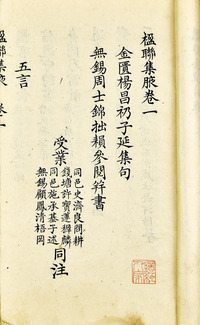 楹聯集腋卷一
金匱楊昌礽子延集句
無錫周士錦拙賴參閱幷書
受業
同邑史濟良問耕
錢塘許寶蓮穉麟
同邑施承基子述
無錫顧鳳清梧岡
同注
五言
楹聯集腋 卷一